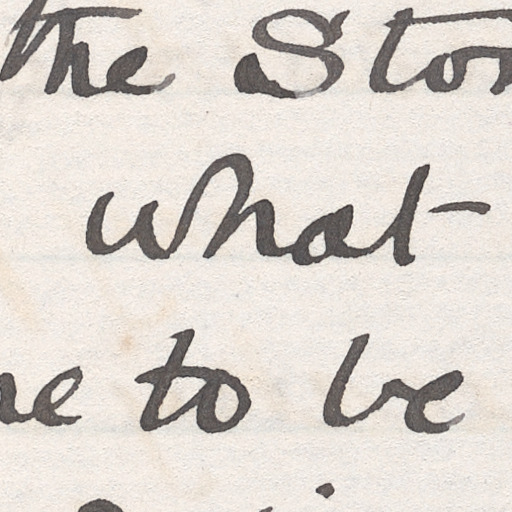 the Stor
what
ne to be